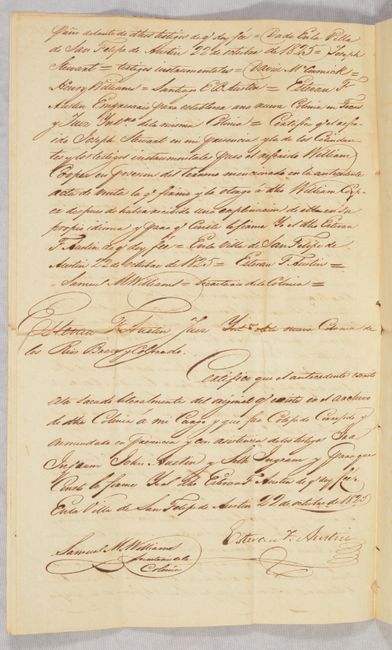 pano delante de dhos testigos de q.e doy fee = Dado En la Villa
de San Felipe de Austin 22 de octubre de 1825 = Joseph
Stewart = testigos instrumentales = David McCormick =
Henry Williams = Santiago E. B. Austin = Estevan F.
Austin Empresario para establecer una nueva Colonia en Texas
y Juez de la misma Colonia = Certifico q.e el referido
Joseph Stewart en mi presencia y la de los
y los testigos instrumentales puso al referido William
Cooper en posesion del terreno mencionado en la antecedente
acta de venta la q.e firmo y la otorgo a dho William
despues de haberse recibido una explicacion de ella en su
propio idioma y para q.e Conste lo firme Yo el dho Estevan
F. Austin de q.e doy fee = En la Villa de San Felipe de
Austin 22 de octubre de 1825 = Estevan F. Austin =
= Samuel M. Williams = Secretario de la Colonia =
Estevan F. Austin Juez de la nueva Colonia de
los Rios Brazos y Colorado.
Certifico que el antecedente
esta sacado literalmente del original q.e existe en el archivo
de dha Colonia á mi Cargo y que fue Cotejado Corregido y
enmendado en presencia y con asistencia de los testigos
Ingram John Austin y Seth Ingram y para que
Conste lo firme Yo el dho Estevan F. Austin de q.e doy fee
En la Villa de San Felipe de Austin 22 de octubre de 1825
Estevan F. Austin
Samuel M. Williams
Secretario de la
Colonia